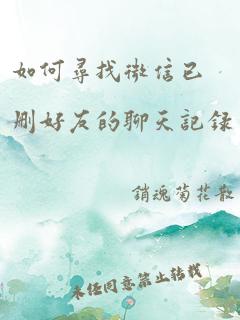 如何尋找微信已
刪好友的聊天記録
銷魂菊花散
未任同意禁止转载